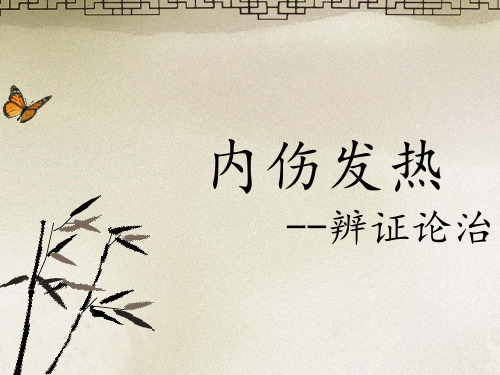 内伤发热
--辨证论治